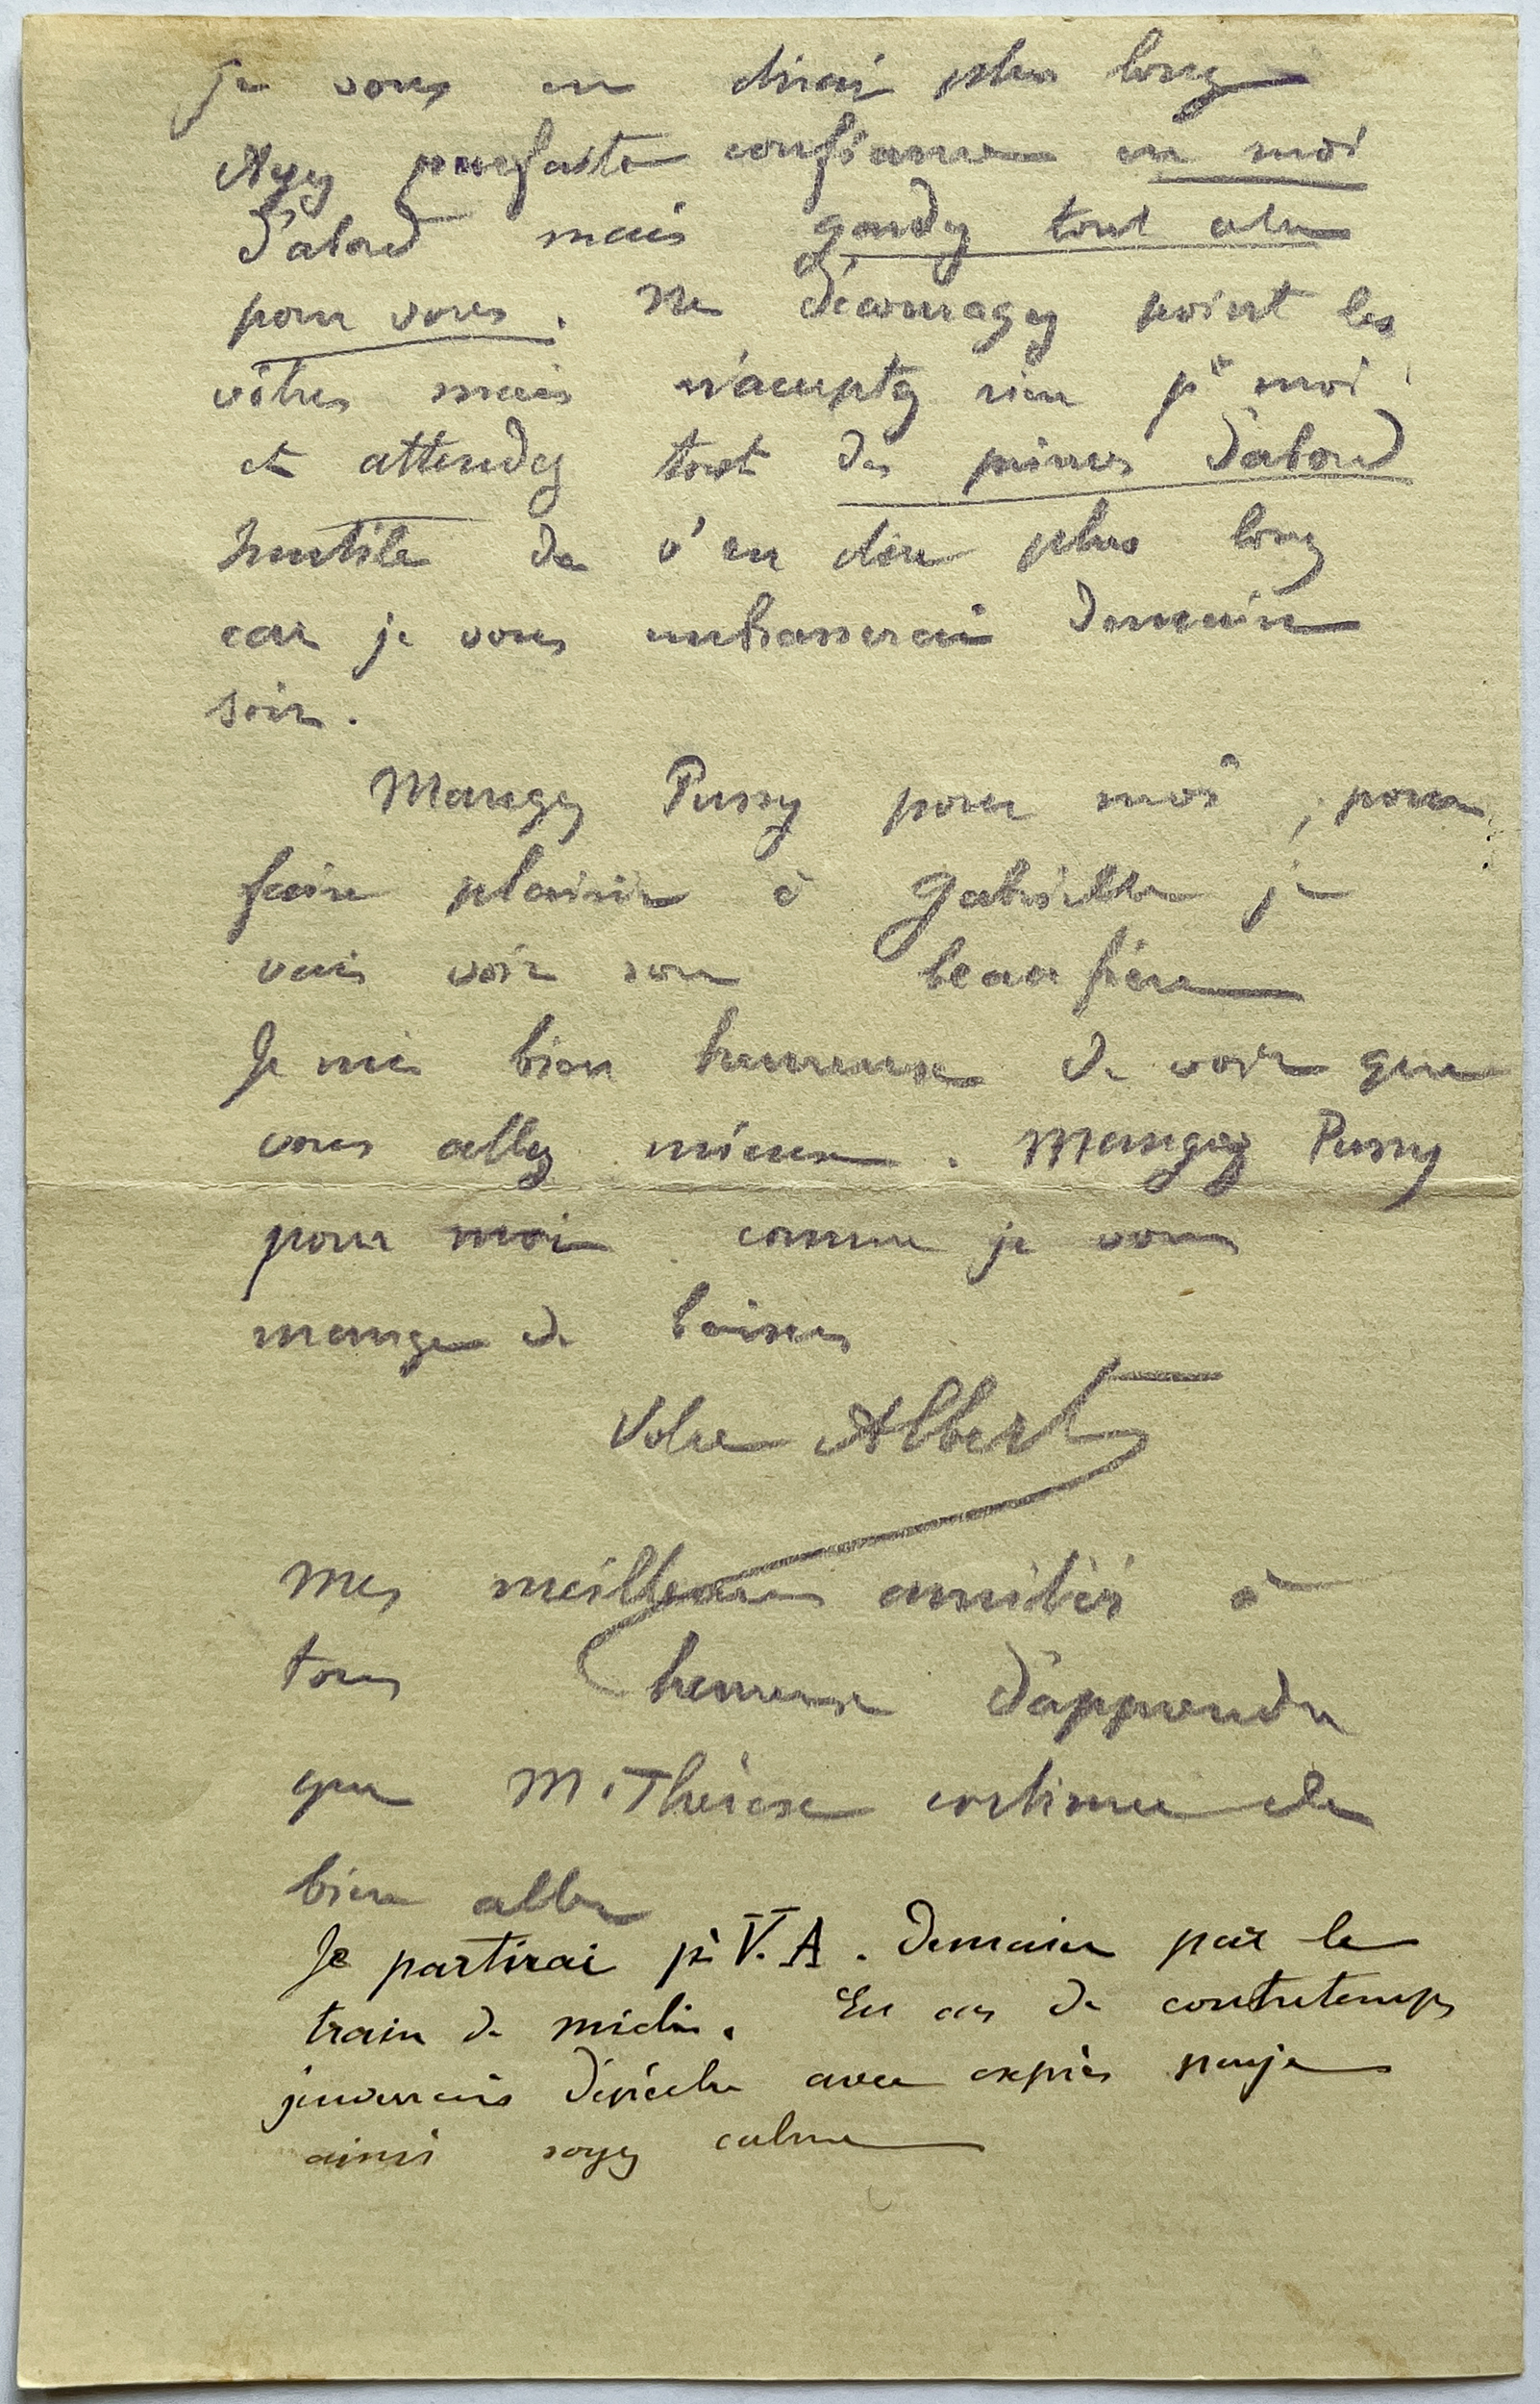 Je vous en dirai plus long
Ayez parfaite confiance en moi
d'abord mais gardez tout cela
pour vous. Ne découragez point les
vôtres mais n'acceptez rien pr moi
et attendez tout des princes d'abord
Inutile de v'en dire plus long
car je vous embrasserai demain
soir.
Mangez Pussy pour moi, pour
faire plaisir à Gabrielle je
vais voir son beau frère
Je suis bien heureux de voir que
vous allez mieux. Mangez Pussy
pour moi comme je vous
mange de baisers
Votre Albert
Mes meilleures amitiés à
tous heureux d'apprendre
que M. Thérèse continue de
bien aller
Je partirai pr V.A. demain par le
train de midi. En cas de contretemps
j'enverrais dépêche avec exprès payé
ainsi soyez calme